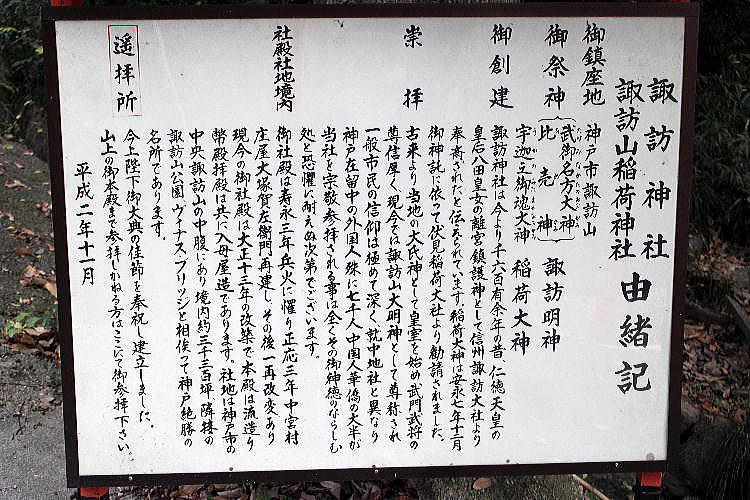 諏訪神社
諏訪山稲荷神社
由緒記
御鎮座地 神戸市諏訪山
御祭神 武御名方大神
比売神
諏訪明神
宇迦之御魂大神 稲荷大神
御創建 諏訪神社は今より千六百有余年の昔、仁徳天皇の
皇后八田皇女の離宮鎮護神として信州諏訪大社より
奉斎されたと伝えられています。稲荷大神は安永七年十二月
御神託に依って伏見稲荷大社より勧請されました。
崇拝 古来より、当地の大氏神として皇室を始め武門武将の
尊信厚く、現今では諏訪山大明神として尊称され
一般市民の信仰は極めて深く、就中地社と異なり
神戸在留中の外国人殊に七千人中国人華僑の大半が
当社を宗敬参拝される事は全くその御神徳のならしむ
処と恐懼に耐えぬ次第でございます。
社殿社地境内 御社殿は寿永三年兵火に罹り正応三年中宮村
庄屋大塚賀左衛門再建し、その後一再改変あり
現今の御社殿は大正十三年の改築で本殿は流造り
幣殿拝殿は共に入母屋造であります。社地は神戸市の
中央諏訪山の中腹にあり境内約三千三百坪隣接の
諏訪山公園、ヴィナスブリッジと相俟って神戸絶勝の
名所であります。
遥拝所 今上陛下御大典の佳節を奉祝し建立しました。
山上の御本殿まで参拝しかねる方はここにて御参拝下さい。
平成二年十一月